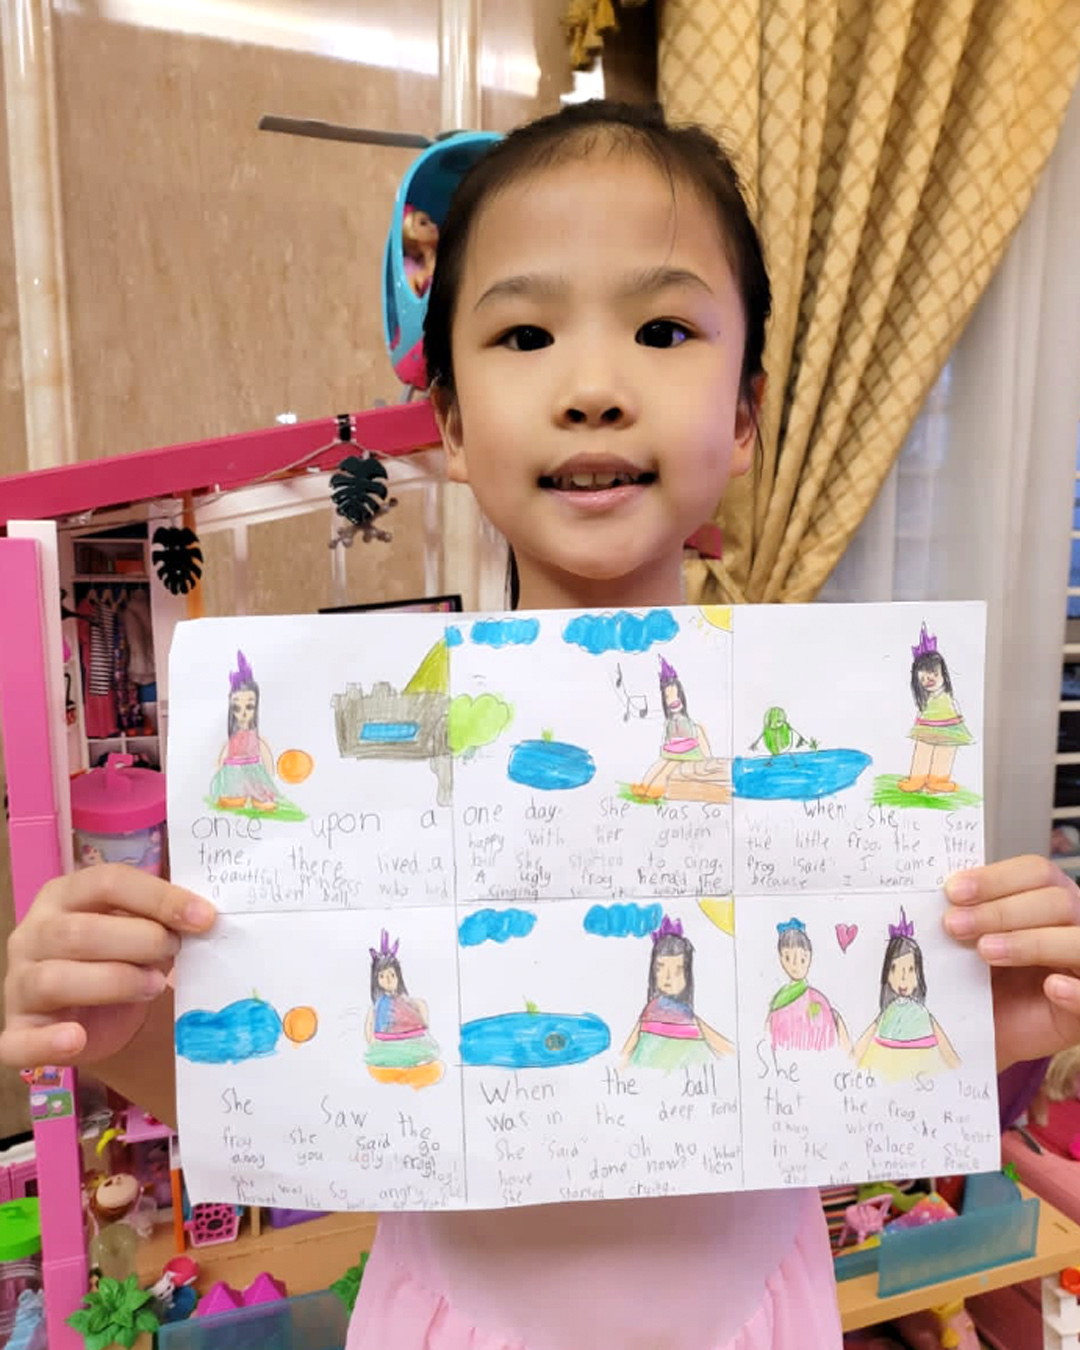 once upon a
time, there lived a
beautiful princess who had
a golden ball
one day she was so
happy with her golden
ball she started to sing.
A ugly frog heard the
singing
when she saw
the little frog, the little
frog said I came here
because I heared a
She saw the
frog she said go
away you ugly frog!
She was so angry, she
When the ball
was in the deep pond
She "said" oh no what
have I done now? then
She started crying.
She cried so loud
that the frog ran
away when she went
in the Palace She
saw a handsome Prince
and